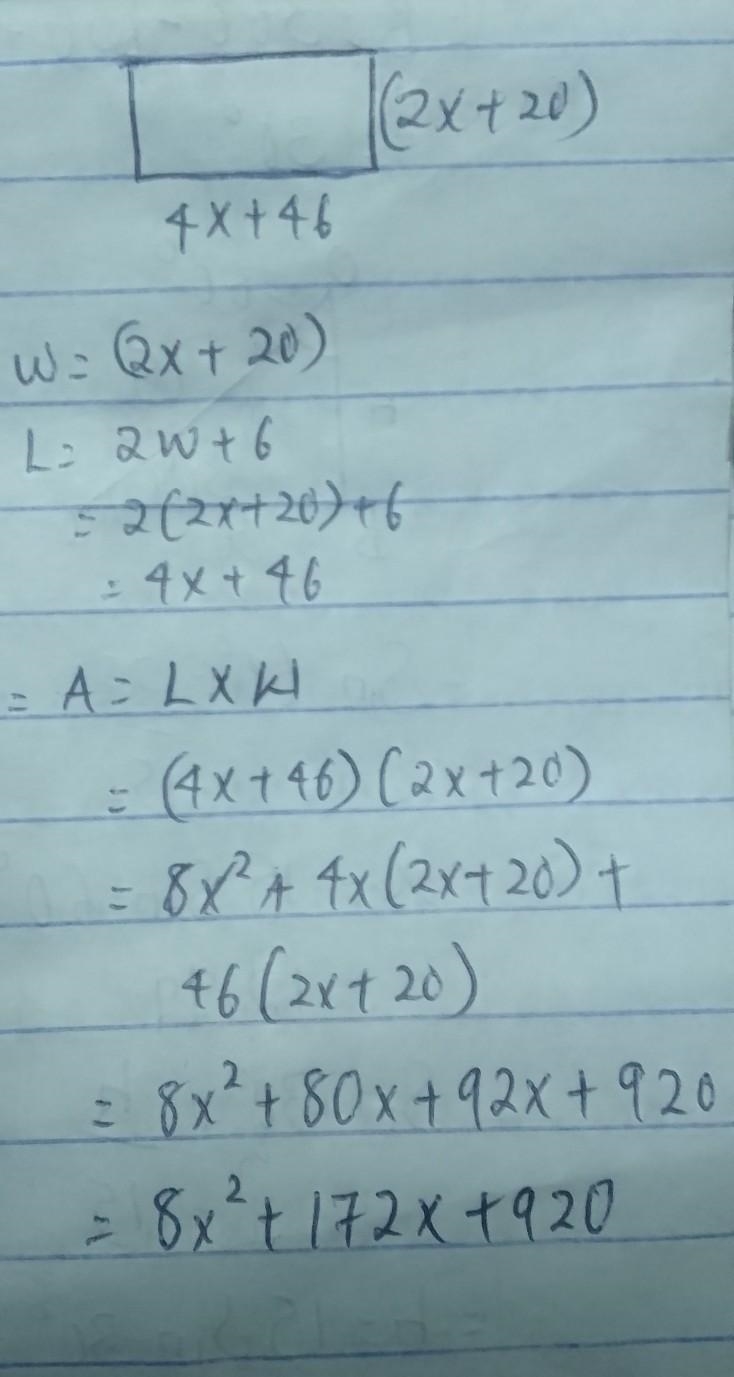 (2x+20)
4x+46
W= (2x+20)
L= 2W+6
= 2(2x+20)+6
= 4x+46
= A= L X W
= (4x+46)(2x+20)
= 8x² + 4x(2x+20)+
46(2x+20)
= 8x²+80x+92x+920
= 8x²+172x+920